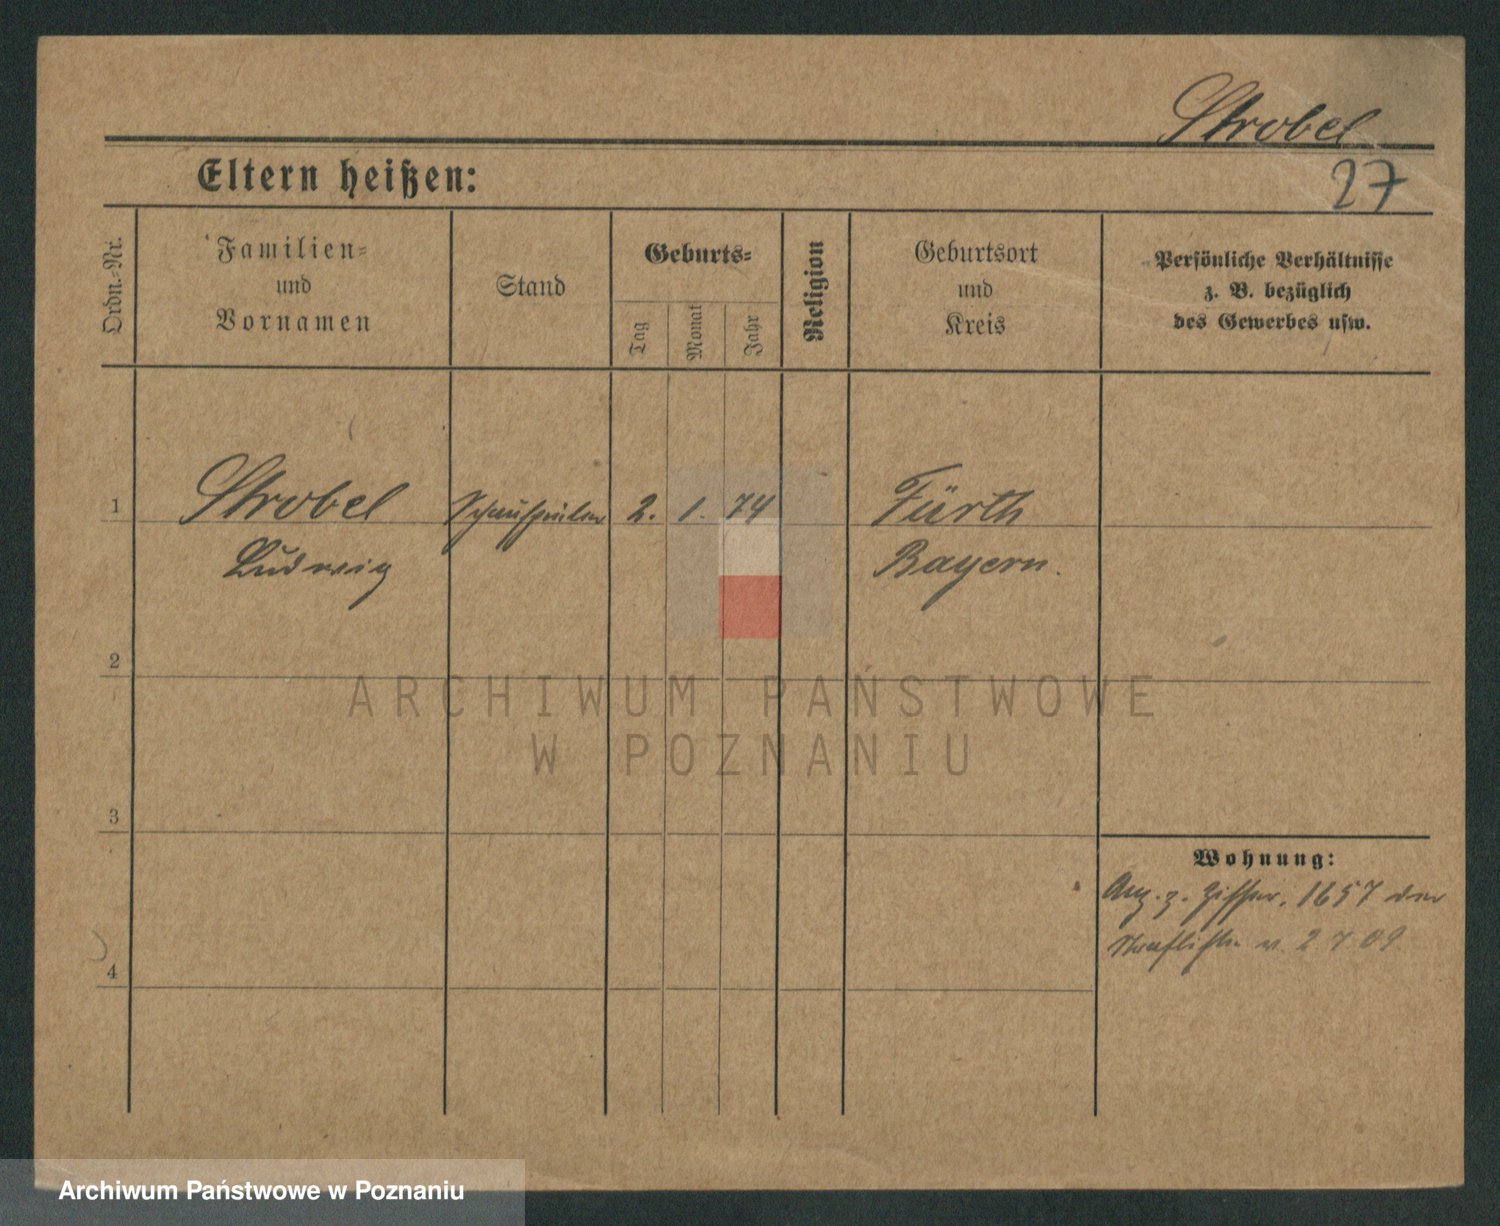 Strobel
27
Eltern heißen:
Ordn.-Nr.
Familien-
und
Vornamen
Stand
Geburts-
Tag
Monat
Jahr
Religion
Geburtsort
und
Kreis
Persönliche Verhältnisse
z. B. bezüglich
des Gewerbes usw.
1
Strobel
Schauspieler
2.
1.
74
Fürth
Ludwig
Bayern.
2
ARCHIWUM PAŃSTWOWE
W POZNANIU
3
Wohnung:
Ang. z. Ziffer. 1657 der
Strafliste v. 2 7 09
4
Archiwum Państwowe w Poznaniu